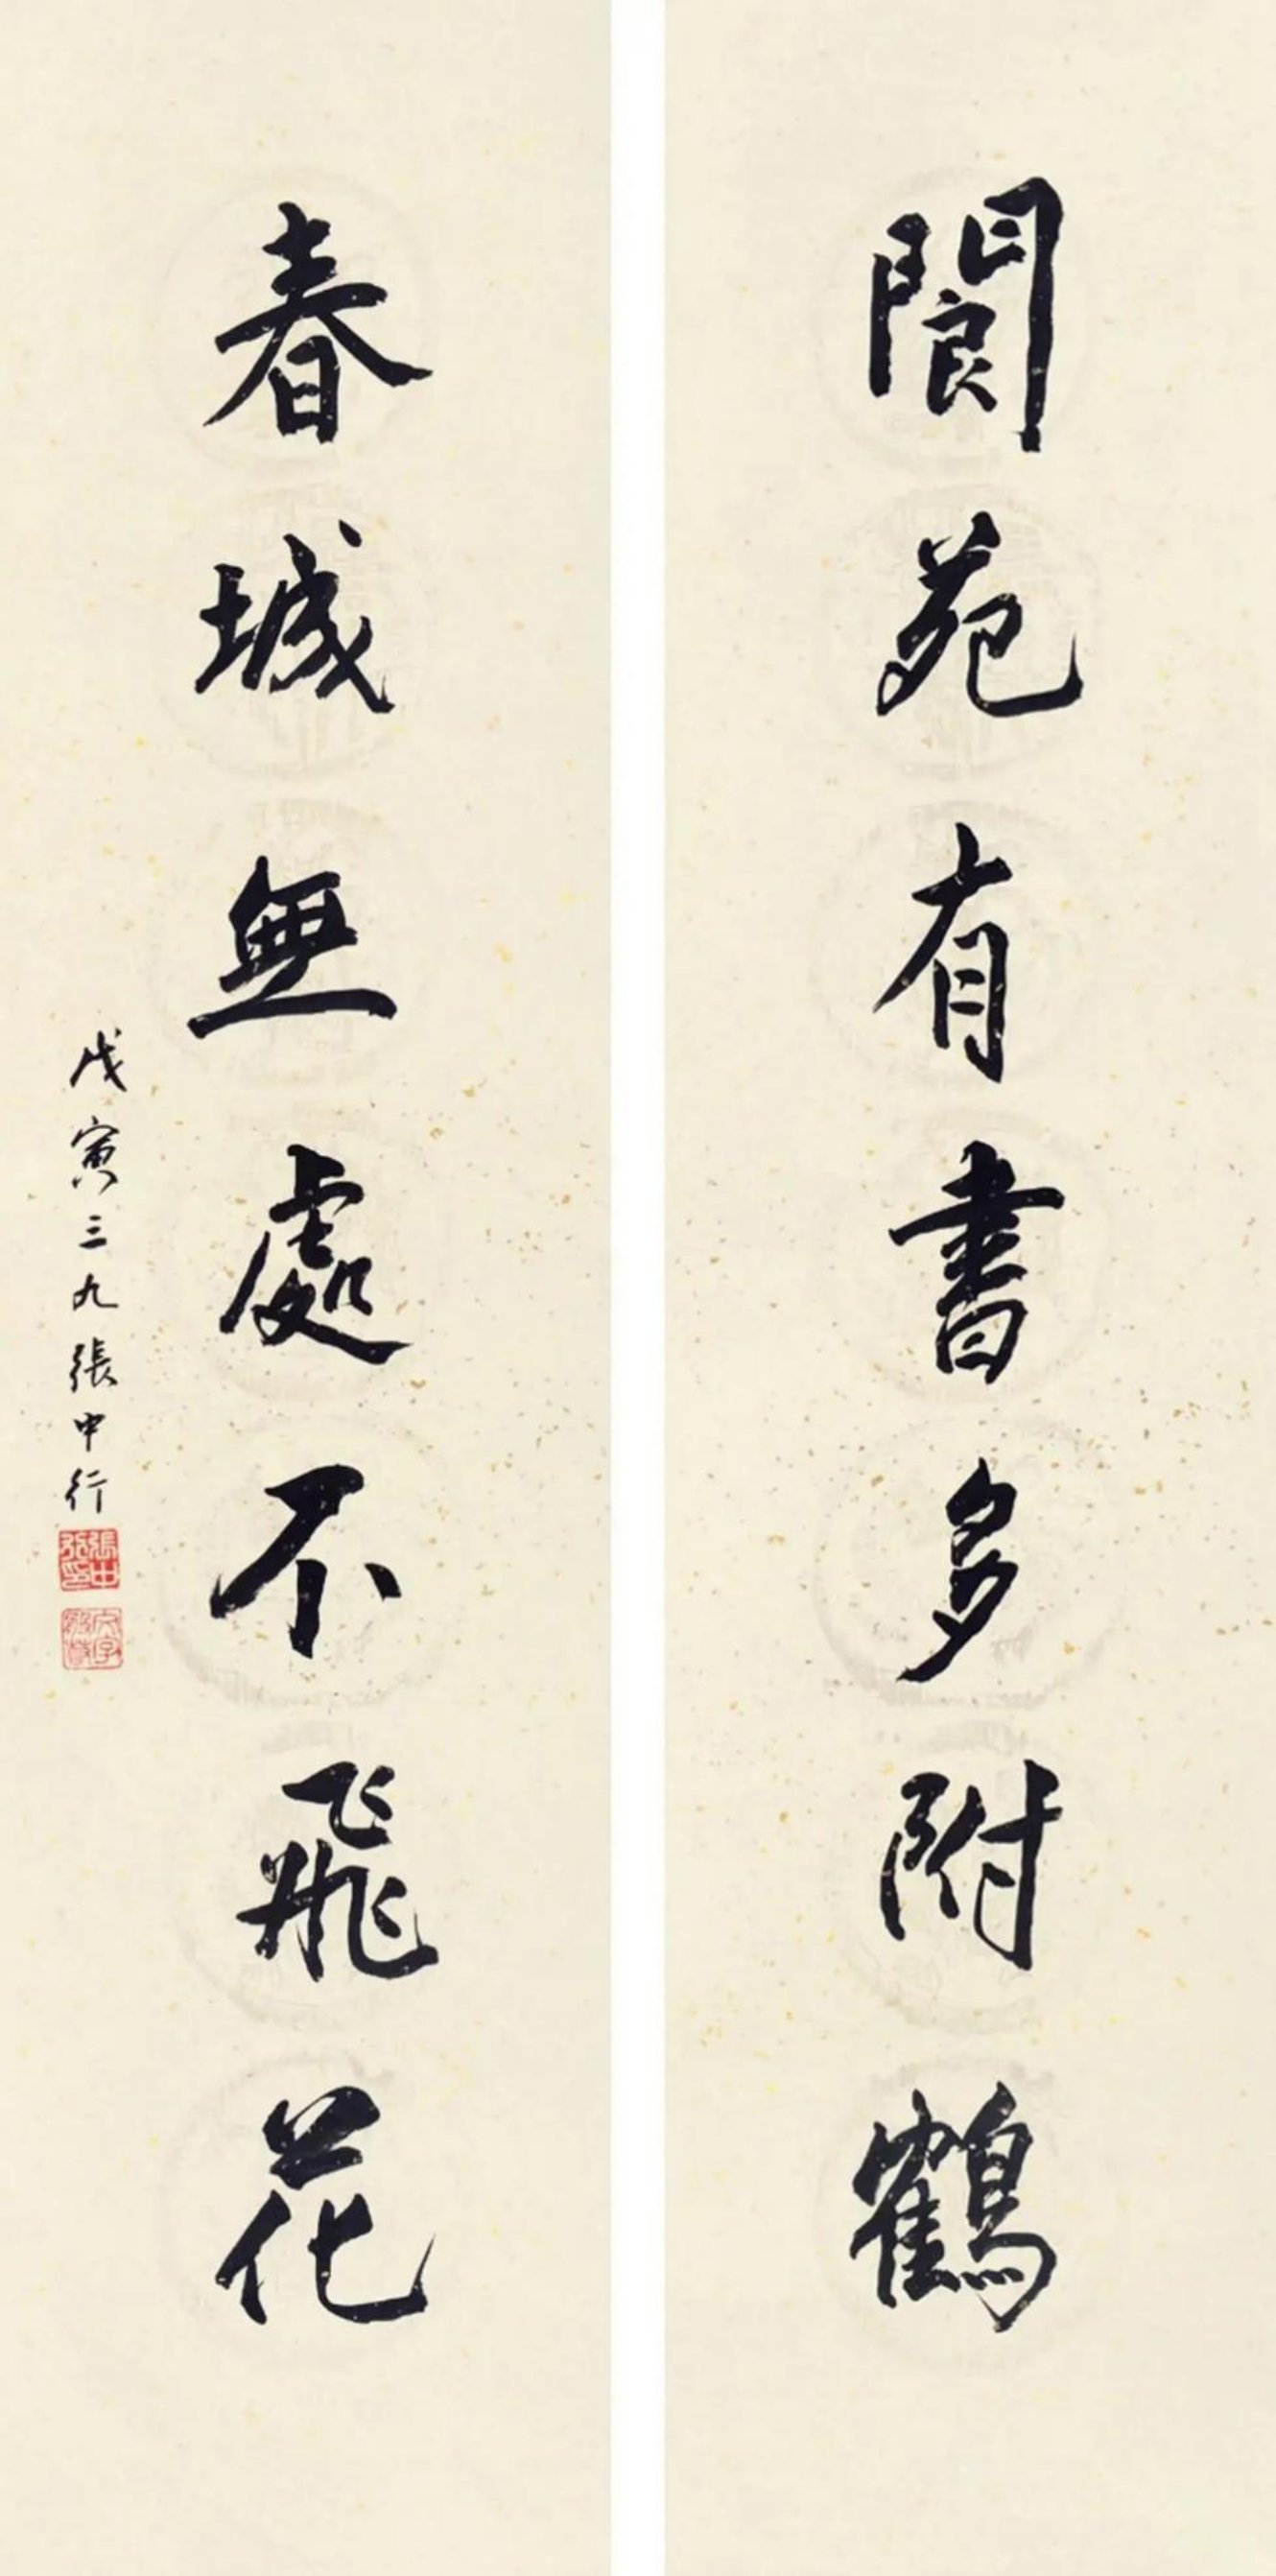 閬苑有書多附鶴
春城無處不飛花
戊寅三九張中行
張中行印